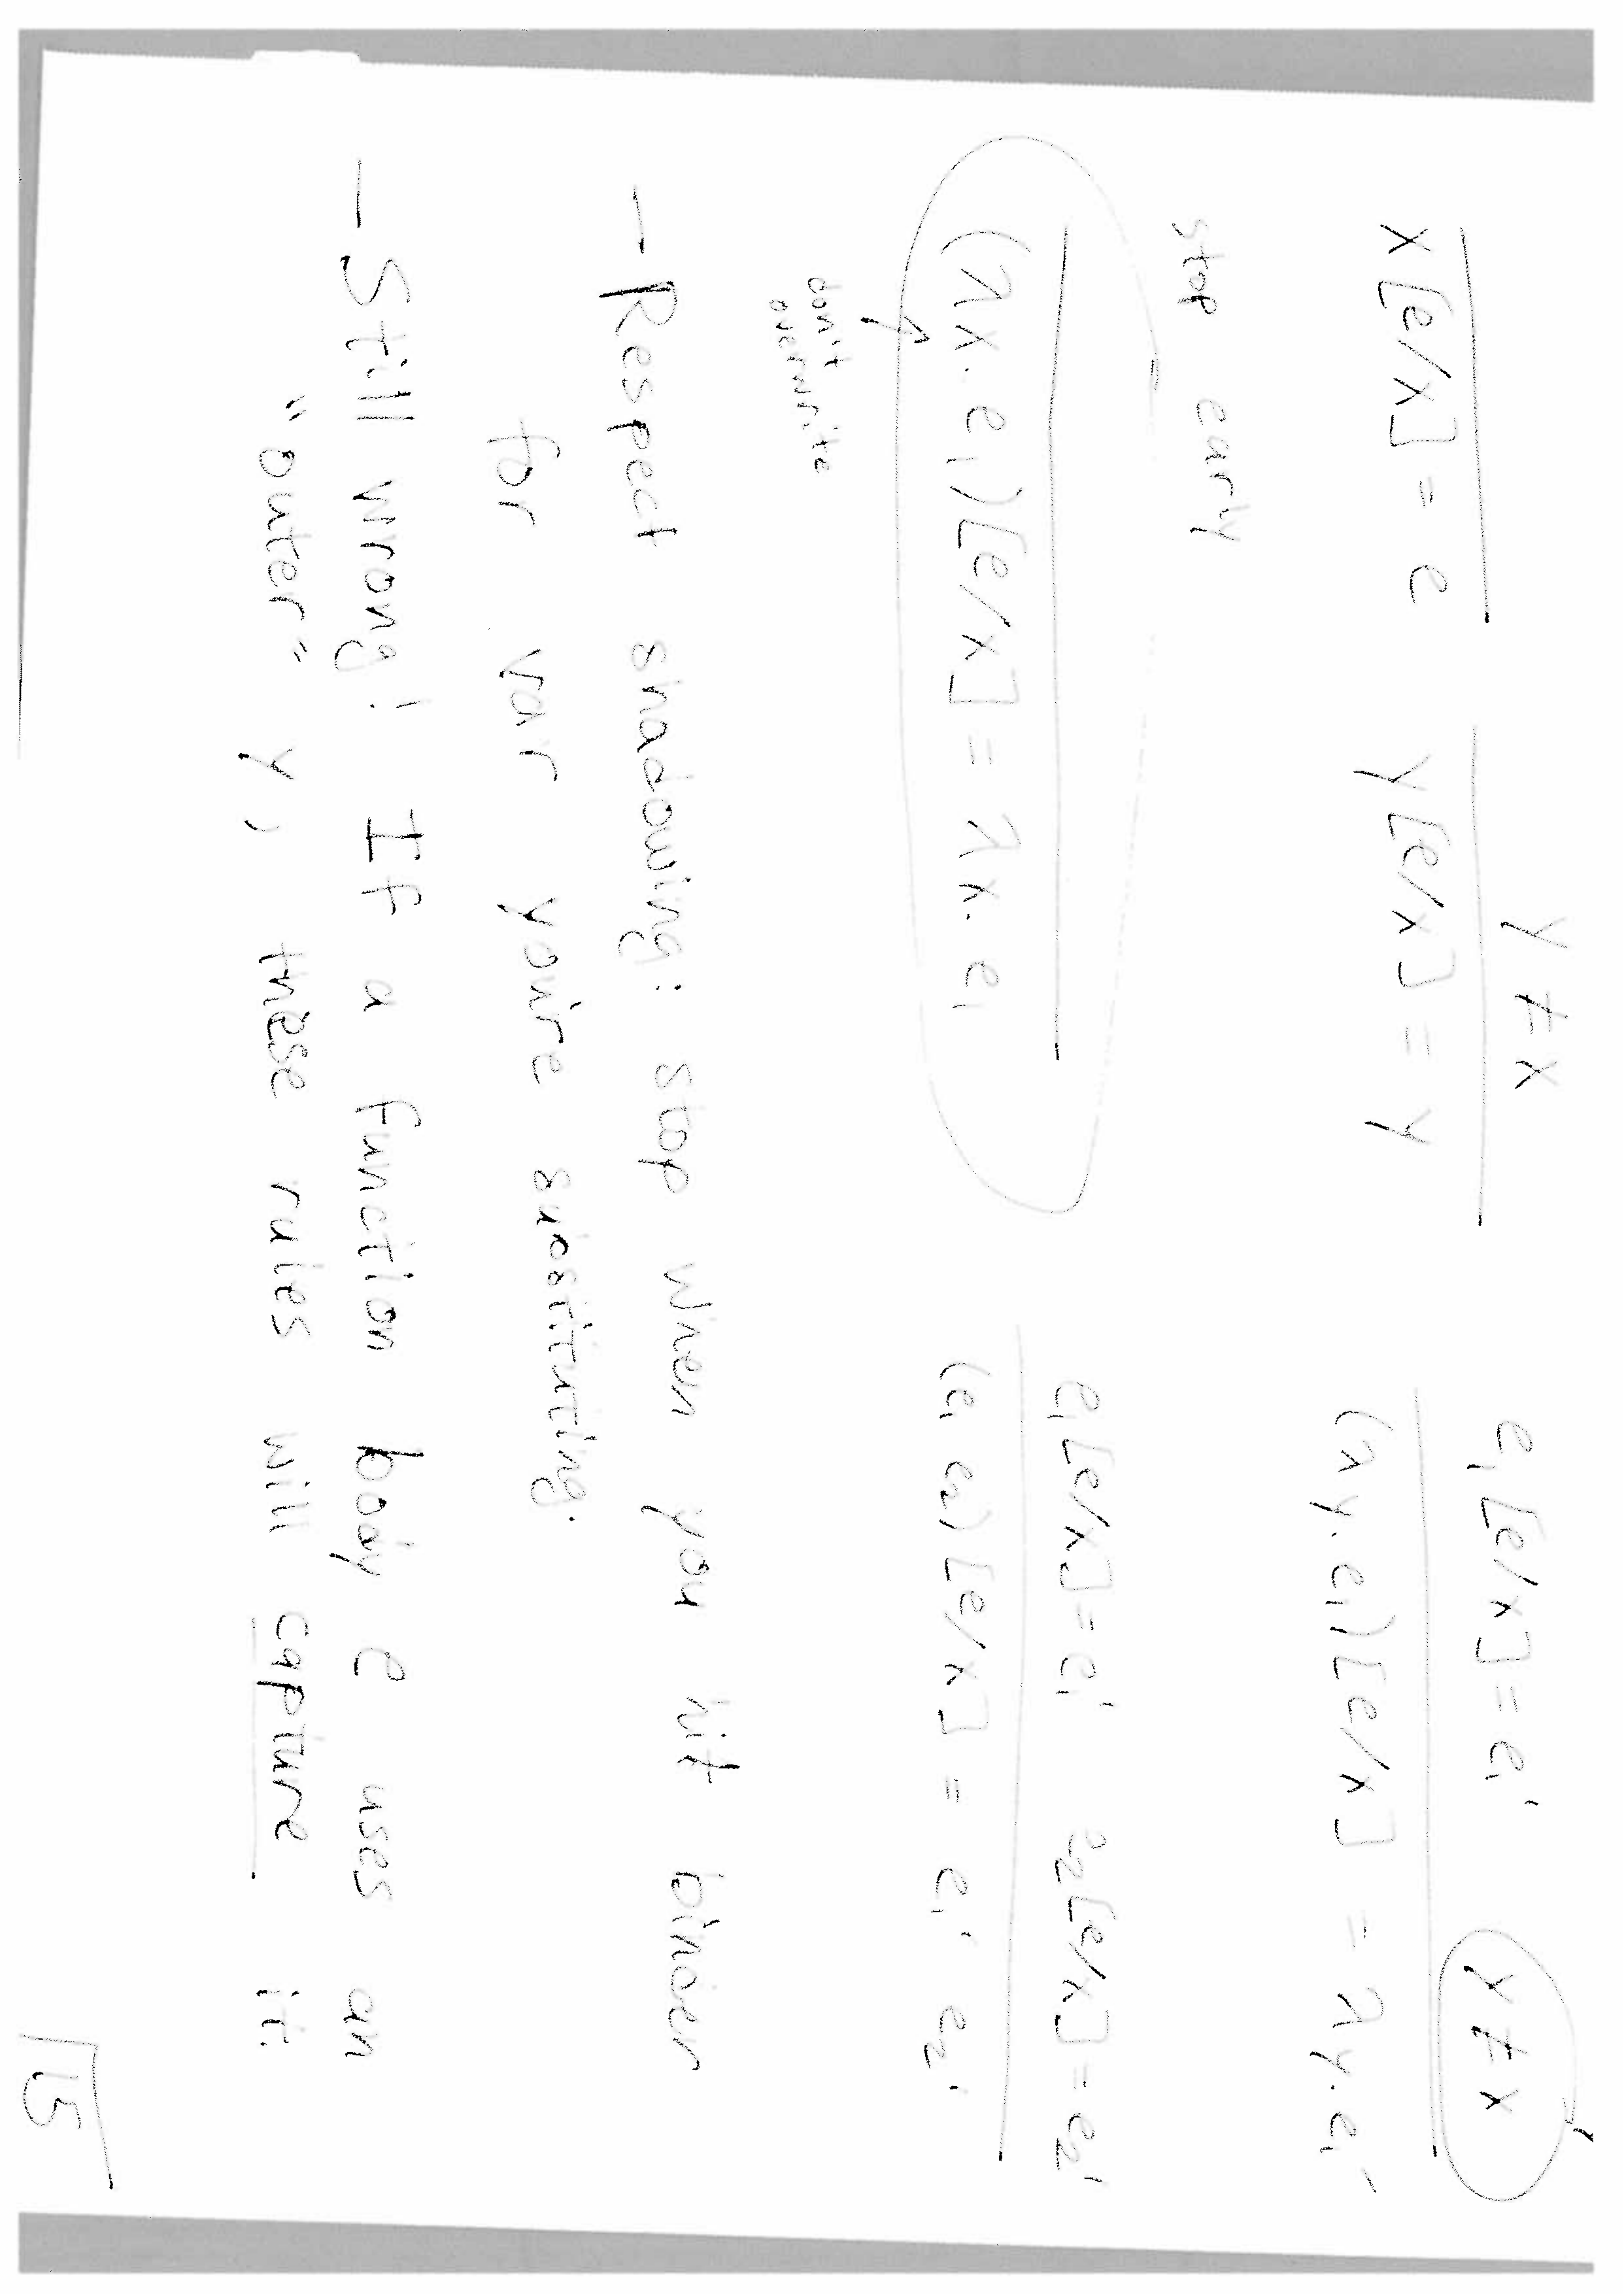 y ≠ x
e₁[e/x] = e₁' y ≠ x
x[e/x] = e
y[e/x] = y
(λy. e₁)[e/x] = λy. e₁'
stop early
e₁[e/x] = e₁' e₂[e/x] = e₂'
(λx. e₁)[e/x] = λx. e₁
(e₁ e₂)[e/x] = e₁' e₂'
don't
overwrite
— Respect shadowing: stop when you hit binder
for var you're substituting.
— Still wrong! If a function body e uses an
"outer" y, these rules will capture it.
15